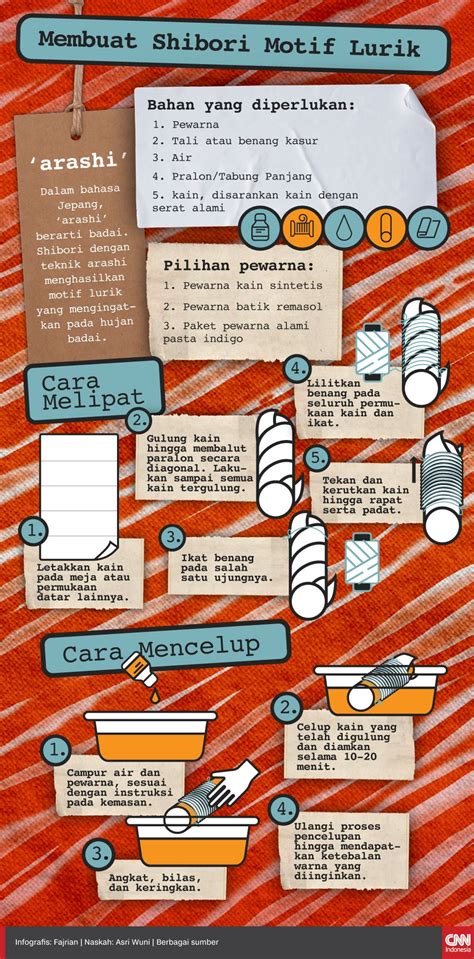 Membuat Shibori Motif Lurik
'arashi'
Dalam bahasa
Jepang,
'arashi'
berarti badai.
Shibori dengan
teknik arashi
menghasilkan
motif lurik
yang mengingat-
kan pada hujan
badai.
Bahan yang diperlukan:
1. Pewarna
2. Tali atau benang kasur
3. Air
4. Pralon/Tabung Panjang
5. kain, disarankan kain dengan
serat alami
Pilihan pewarna:
1. Pewarna kain sintetis
2. Pewarna batik remasol
3. Paket pewarna alami
pasta indigo
Cara
Melipat
1.
Letakkan kain
pada meja atau
permukaan
datar lainnya.
2.
Gulung kain
hingga membalut
paralon secara
diagonal. Laku-
kan sampai semua
kain tergulung.
3.
Ikat benang
pada salah
satu ujungnya.
4.
Lilitkan
benang pada
seluruh permu-
kaan kain dan
ikat.
5.
Tekan dan
kerutkan kain
hingga rapat
serta padat.
Cara Mencelup
1.
Campur air dan
pewarna, sesuai
dengan instruksi
pada kemasan.
2.
Celup kain yang
telah digulung
dan diamkan
selama 10-20
menit.
3.
Angkat, bilas,
dan keringkan.
4.
Ulangi proses
pencelupan
hingga mendapat-
kan ketebalan
warna yang
diinginkan.
Infografis: Fajrian | Naskah: Asri Wuni | Berbagai sumber
CNN
Indonesia